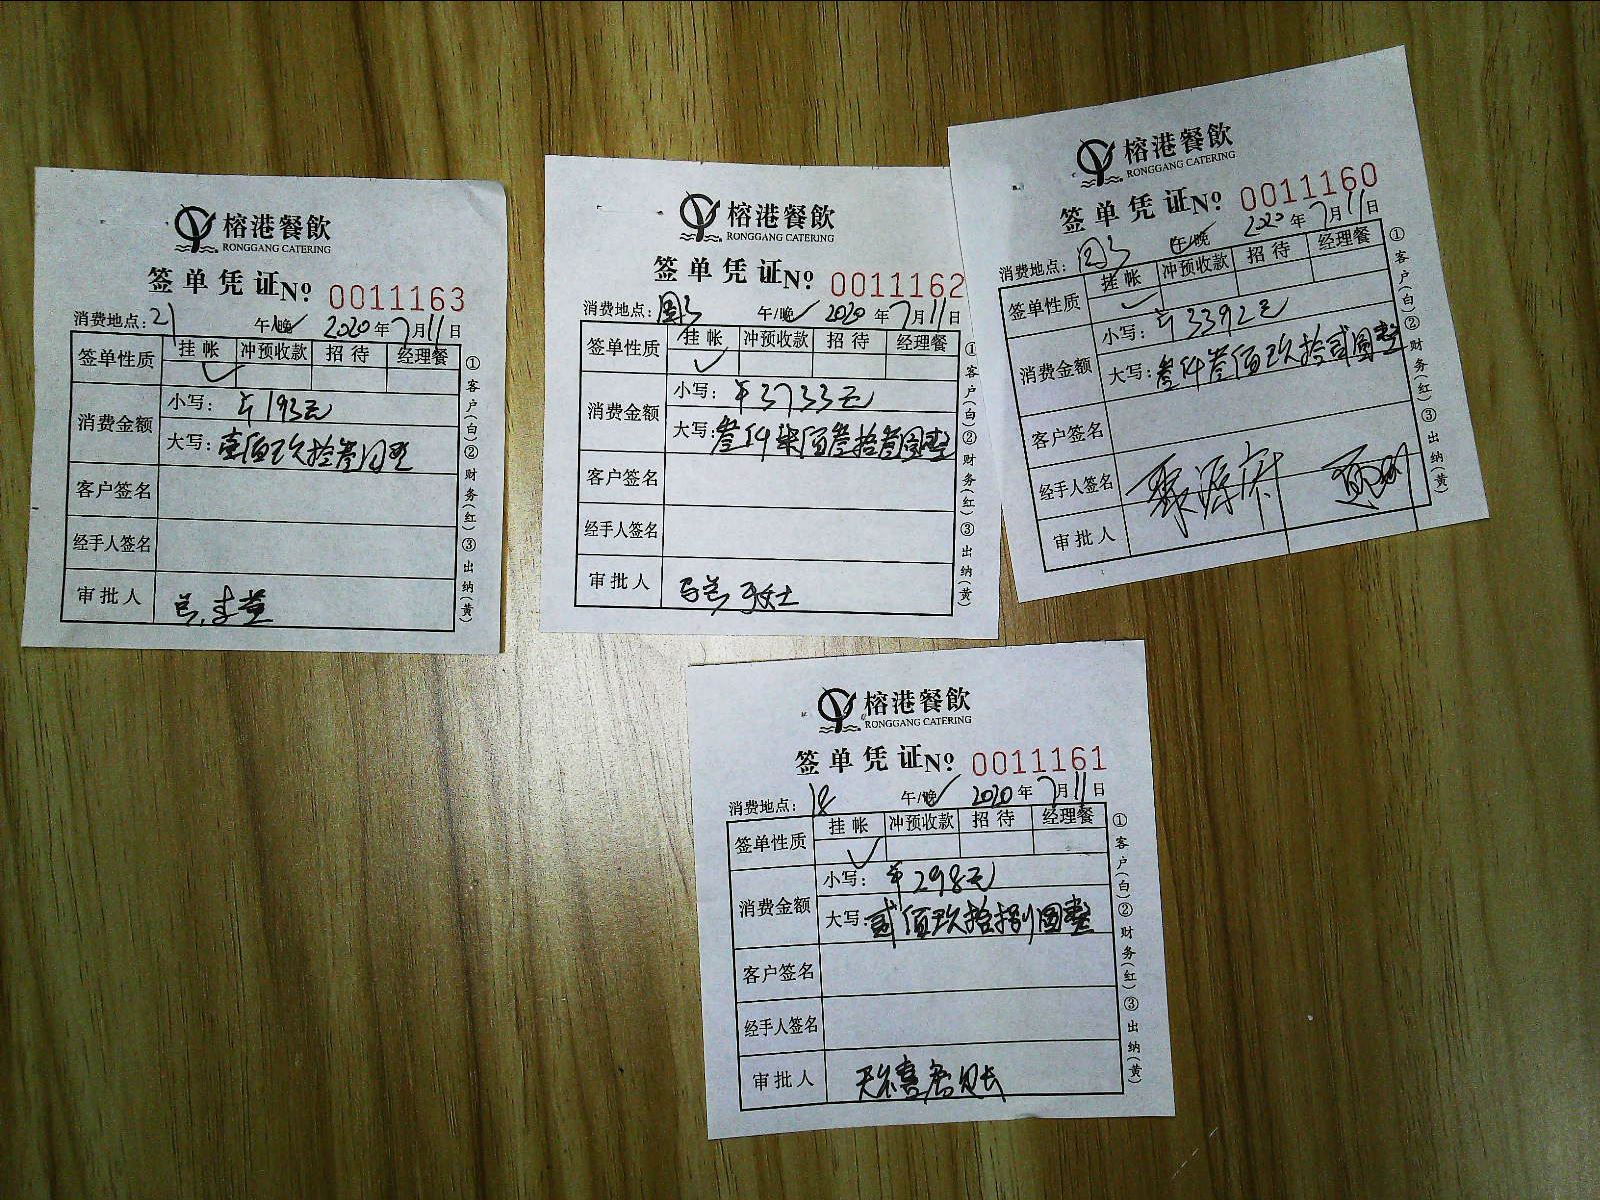 榕港餐飲
RONGGANG CATERING
签单凭证 Nº 0011163
消费地点：21 午/晚 2020年7月11日
签单性质 挂帐 冲预收款 招待 经理餐
消费金额
小写：¥193元
大写：壹佰玖拾叁圆整
客户签名
经手人签名
审批人
①客户(白)②财务(红)③出纳(黄)
榕港餐飲
RONGGANG CATERING
签单凭证 Nº 0011162
消费地点： 午/晚 2020年7月11日
签单性质 挂帐 冲预收款 招待 经理餐
消费金额
小写：¥3733元
大写：叁仟柒佰叁拾叁圆整
客户签名
经手人签名
审批人 女士
①客户(白)②财务(红)③出纳(黄)
榕港餐飲
RONGGANG CATERING
签单凭证 Nº 0011160
消费地点： 午/晚 2020年7月11日
签单性质 挂帐 冲预收款 招待 经理餐
消费金额
小写：¥3392元
大写：叁仟叁佰玖拾贰圆整
客户签名
经手人签名
审批人
①客户(白)②财务(红)③出纳(黄)
榕港餐飲
RONGGANG CATERING
签单凭证 Nº 0011161
消费地点：18 午/晚 2020年7月11日
签单性质 挂帐 冲预收款 招待 经理餐
消费金额
小写：¥298元
大写：贰佰玖拾捌圆整
客户签名
经手人签名
审批人
①客户(白)②财务(红)③出纳(黄)